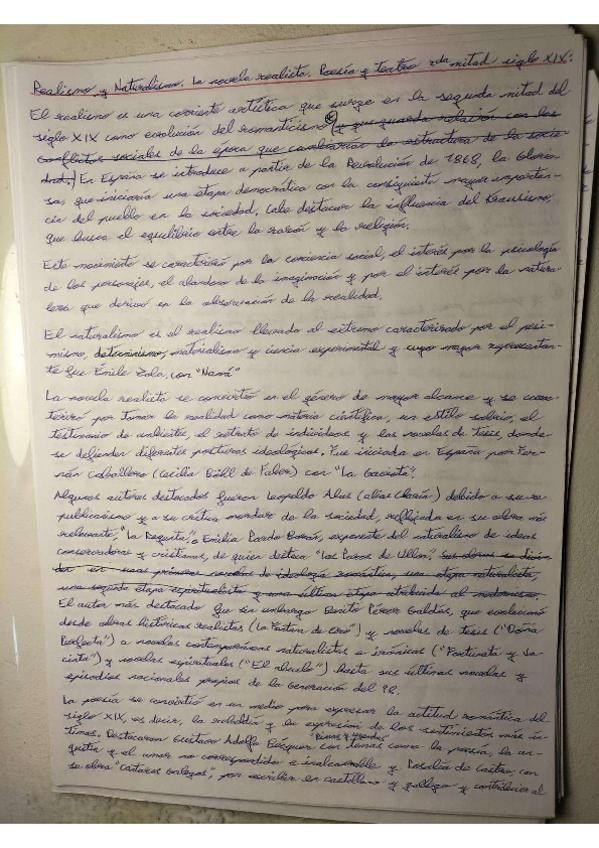 Realismo y Naturalismo. La novela realista. Poesía y teatro 2da mitad siglo XIX:
El realismo es una corriente artística que surge en la segunda mitad del
siglo XIX como evolución del romanticismo (y que guarda relación con los
conflictos sociales de la época que cambiarían la estructura de la socie-
dad.) En España se introduce a partir de la Revolución de 1868, la Glorio-
sa, que iniciaría una etapa democrática con la consiguiente mayor importan-
cia del pueblo en la sociedad. Cabe destacar la influencia del Krausismo,
que busca el equilibrio entre la razón y la religión.
Este movimiento se caracterizó por la conciencia social, el interés por la psicología
de los personajes, el abandono de la imaginación y por el interés por la natura-
leza que derivó en la observación de la realidad.
El naturalismo es el realismo llevado al extremo caracterizado por el pesi-
mismo, determinismo, materialismo y ciencia experimental y cuyo mayor representan-
te fue Émile Zola, con "Naná"
La novela realista se convirtió en el género de mayor alcance y se carac-
terizó por tomar la realidad como materia científica, un estilo sobrio, el
testimonio de ambientes, el retrato de individuos y las novelas de tesis, donde
se defienden diferentes posturas ideológicas. Fue iniciada en España por Fer-
nán Caballero (Cecilia Böhl de Faber) con "La Gaviota".
Algunos autores destacados fueron Leopoldo Alas (alias Clarín) debido a su re-
publicanismo y a su crítica mordaz de la sociedad, reflejada en su obra más
relevante, "La Regenta", o Emilia Pardo Bazán, exponente del naturalismo de ideas
conservadoras y cristianas, de quien destaca "Los Pazos de Ulloa". Sus obras se divi-
den en unas primeras novelas de ideología romántica, una etapa naturalista,
una segunda etapa espiritualista y una última etapa atribuida al modernismo.
El autor más destacado fue sin embargo Benito Pérez Galdós, que evolucionó
desde obras históricas realistas (La Fontana de Oro) y novelas de tesis ("Doña
Perfecta") a novelas contemporáneas naturalistas e irónicas ("Fortunata y Ja-
cinta") y novelas espirituales ("El abuelo") hasta sus últimas novelas y
episodios nacionales propios de la Generación del 98.
La poesía se convirtió en un medio para expresar la actitud romántica del
siglo XIX, es decir, la rebeldía y la expresión de los sentimientos más ín-
timos. Destacaron Gustavo Adolfo Bécquer con temas como la poesía, la an-
gustia y el amor no correspondido e inalcanzable y Rosalía de Castro, con
su obra "Cantares Gallegos", por escribir en castellano y gallego y contribuir al